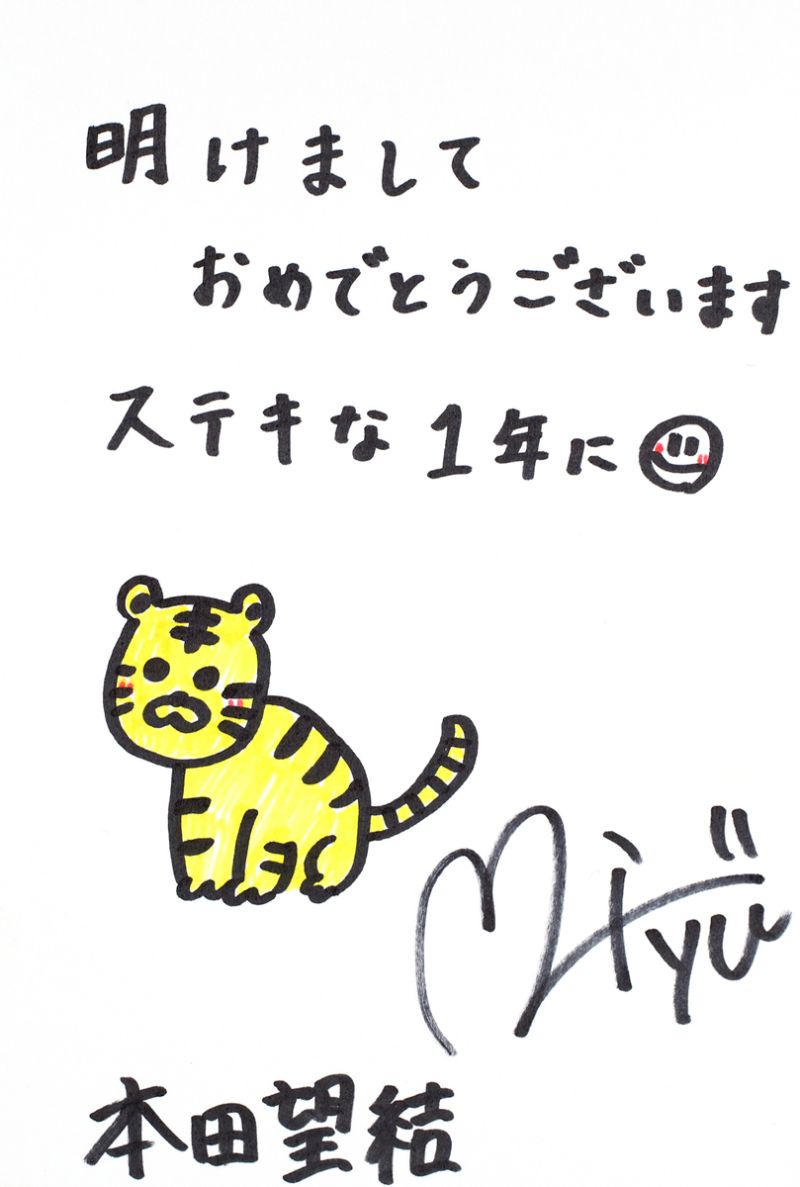 明けまして
おめでとうございます
ステキな1年に
Miyu
本田望結